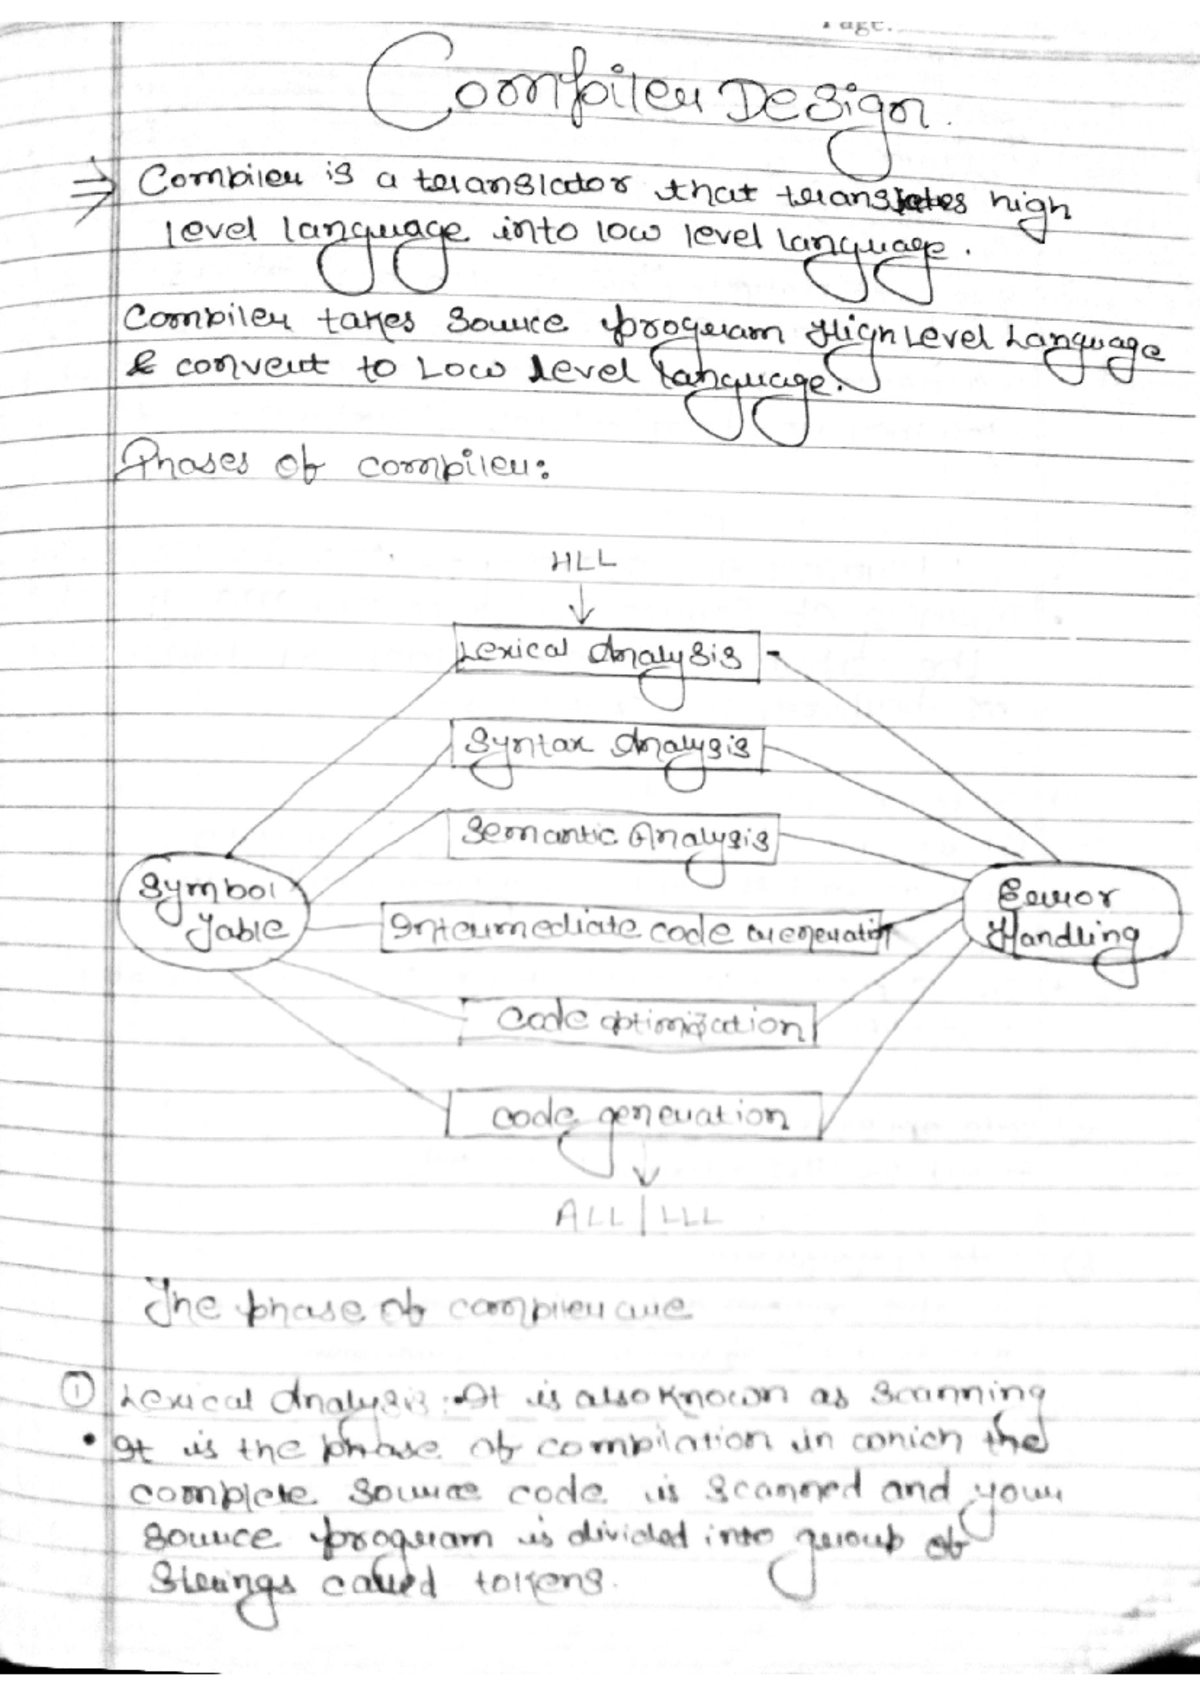 Page.
Compiler Design.
⇒ Compiler is a translator that translates high
level language into low level language.
Compiler takes source program High Level Language
& convert to Low Level Language.
Phases of compiler:
HLL
Lexical Analysis
Syntax Analysis
Semantic Analysis
Symbol
Table
Error
Handling
Intermediate code Generation
Code optimization
Code generation
ALL | LLL
The phase of compiler are
① Lexical Analysis :- It is also known as scanning
• It is the phase of compilation in which the
complete source code is scanned and your
source program is divided into group of
strings called tokens.